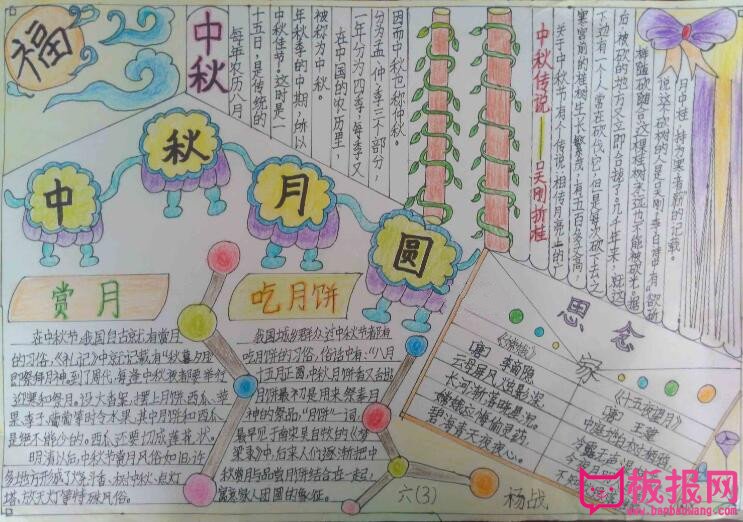 福
中秋
每年农历八月
十五日,是传统的
中秋佳节。这时是一
年秋季的中期,所以
被称为中秋。
在中国的农历里,
一年分为四季,每季又
分为孟、仲、季三个部分,
因而中秋也称仲秋。
中秋传说——吴刚折桂
关于中秋节有个传说:相传月亮上的广
寒宫前的桂树生长繁茂,有五百多丈高,
下边有一个人常在砍伐它,但是每次砍下去之
后,被砍的地方又立即合拢了。几千年来,就这
样随砍随合,这棵桂树永远也不能被砍光。据
说这个砍树的人是吴刚,李白诗中有"欲斫
月中桂,持为寒者薪"的记载。
中秋月圆
赏月
在中秋节,我国自古就有赏月
的习俗,《礼记》中就记载有"秋暮夕月",
即祭拜月神。到了周代,每逢中秋夜都要举行
迎寒和祭月。设大香案,摆上月饼、西瓜、苹
果、李子、葡萄等时令水果,其中月饼和西瓜
是绝不能少的。西瓜还要切成莲花状。
明清以后,中秋节赏月风俗如旧,许
多地方形成了烧斗香、树中秋、点灯
塔、放天灯等特殊风俗。
吃月饼
我国城乡群众过中秋节都有
吃月饼的习俗,俗话中有:"八月
十五月正圆,中秋月饼香又甜。"
月饼最初是用来祭奉月
神的祭品,"月饼"一词,
最早见于南宋吴自牧的《梦
梁录》中,后来人们逐渐把中
秋赏月与品尝月饼结合在一起,
寓意家人团圆的象征。
思念家
《嫦娥》
[唐] 李商隐
云母屏风烛影深,
长河渐落晓星沉。
嫦娥应悔偷灵药,
碧海青天夜夜心。
《十五夜望月》
[唐] 王建
中庭地白树栖鸦,
冷露无声
今夜月明
不知
六(3) 杨战
板报网
www.banbaowang.com